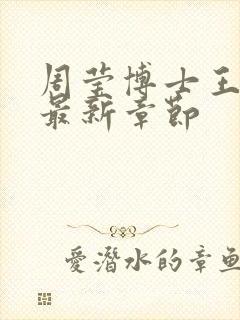 周莹博士王
最新章节
愛潛水的章魚